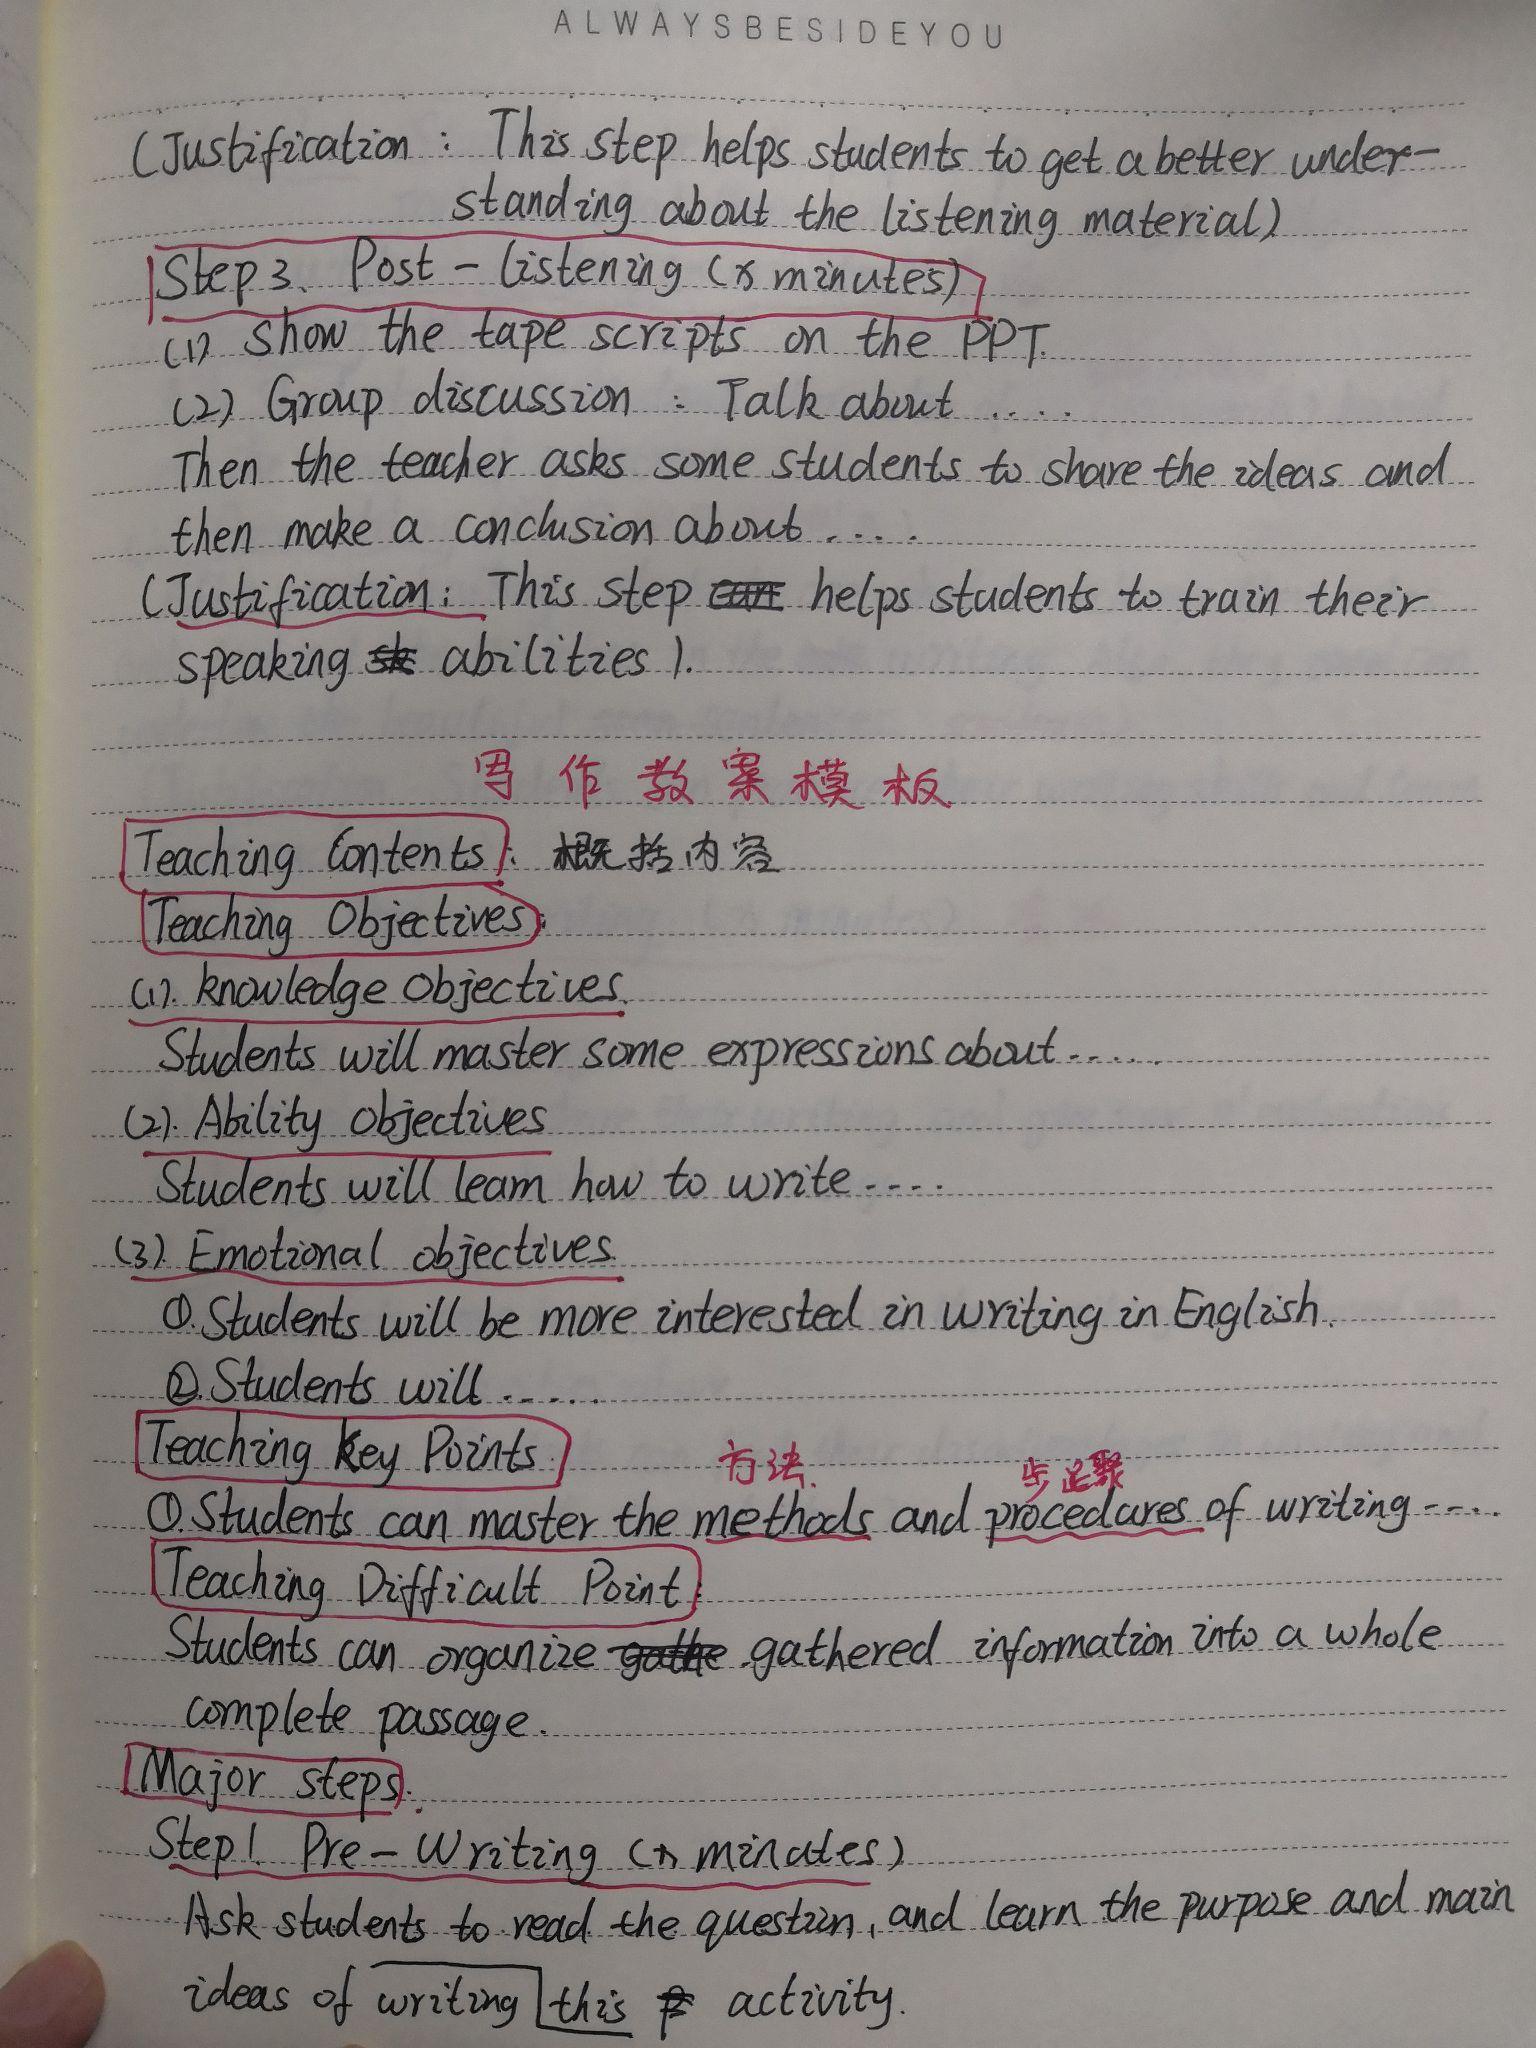 ALWAYSBESIDEYOU
(Justification : This step helps students to get a better under-
standing about the listening material)
Step 3. Post - listening (x minutes)
(1) Show the tape scripts on the PPT.
(2) Group discussion : Talk about ....
Then the teacher asks some students to share the ideas and
then make a conclusion about ....
(Justification: This step can helps students to train their
speaking sk abilities).
写作教案模板
Teaching Contents: 概括内容
Teaching Objectives:
(1). knowledge objectives.
Students will master some expressions about .....
(2). Ability objectives
Students will learn how to write ....
(3). Emotional objectives.
①.Students will be more interested in writing in English.
②.Students will .....
Teaching key Points.
方法. 步骤
①.Students can master the methods and procedures of writing ....
Teaching Difficult Point:
Students can organize gathe gathered information into a whole
complete passage.
Major steps.
Step1. Pre - Writing (x minutes)
Ask students to read the question, and learn the purpose and main
ideas of writing this activity.